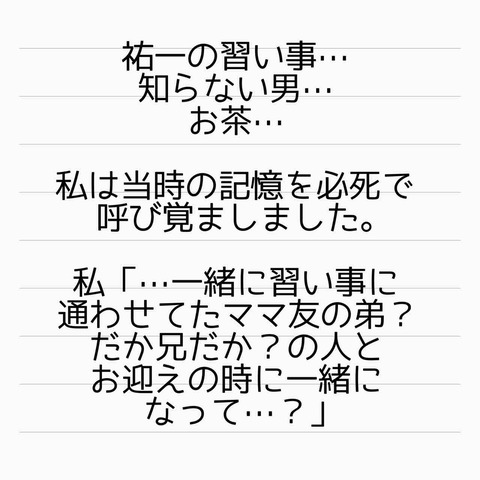 祐一の習い事…
知らない男…
お茶…
私は当時の記憶を必死で
呼び覚ましました。
私「…一緒に習い事に
通わせてたママ友の弟？
だか兄だか？の人と
お迎えの時に一緒に
なって…？」